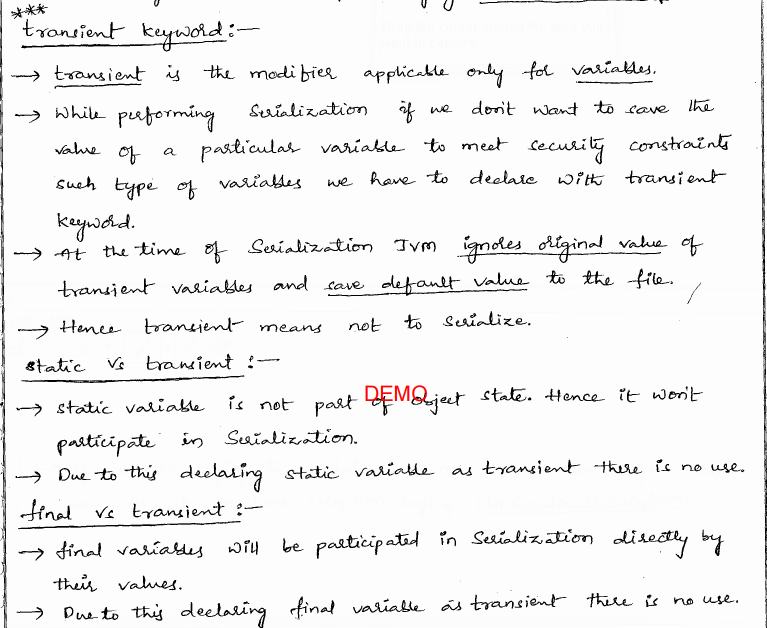 ***
transient keyword:—
→ transient is the modifier applicable only for variables.
→ While performing Serialization if we don't want to save the
value of a particular variable to meet security constraints
such type of variables we have to declare with transient
keyword.
→ At the time of Serialization JVM ignores original value of
transient variables and save default value to the file.
→ Hence transient means not to serialize.
static vs transient:—
→ static variable is not part of object state. Hence it won't
DEMO
participate in Serialization.
→ Due to this declaring static variable as transient there is no use.
final vs transient:—
→ final variables will be participated in Serialization directly by
their values.
→ Due to this declaring final variable as transient there is no use.